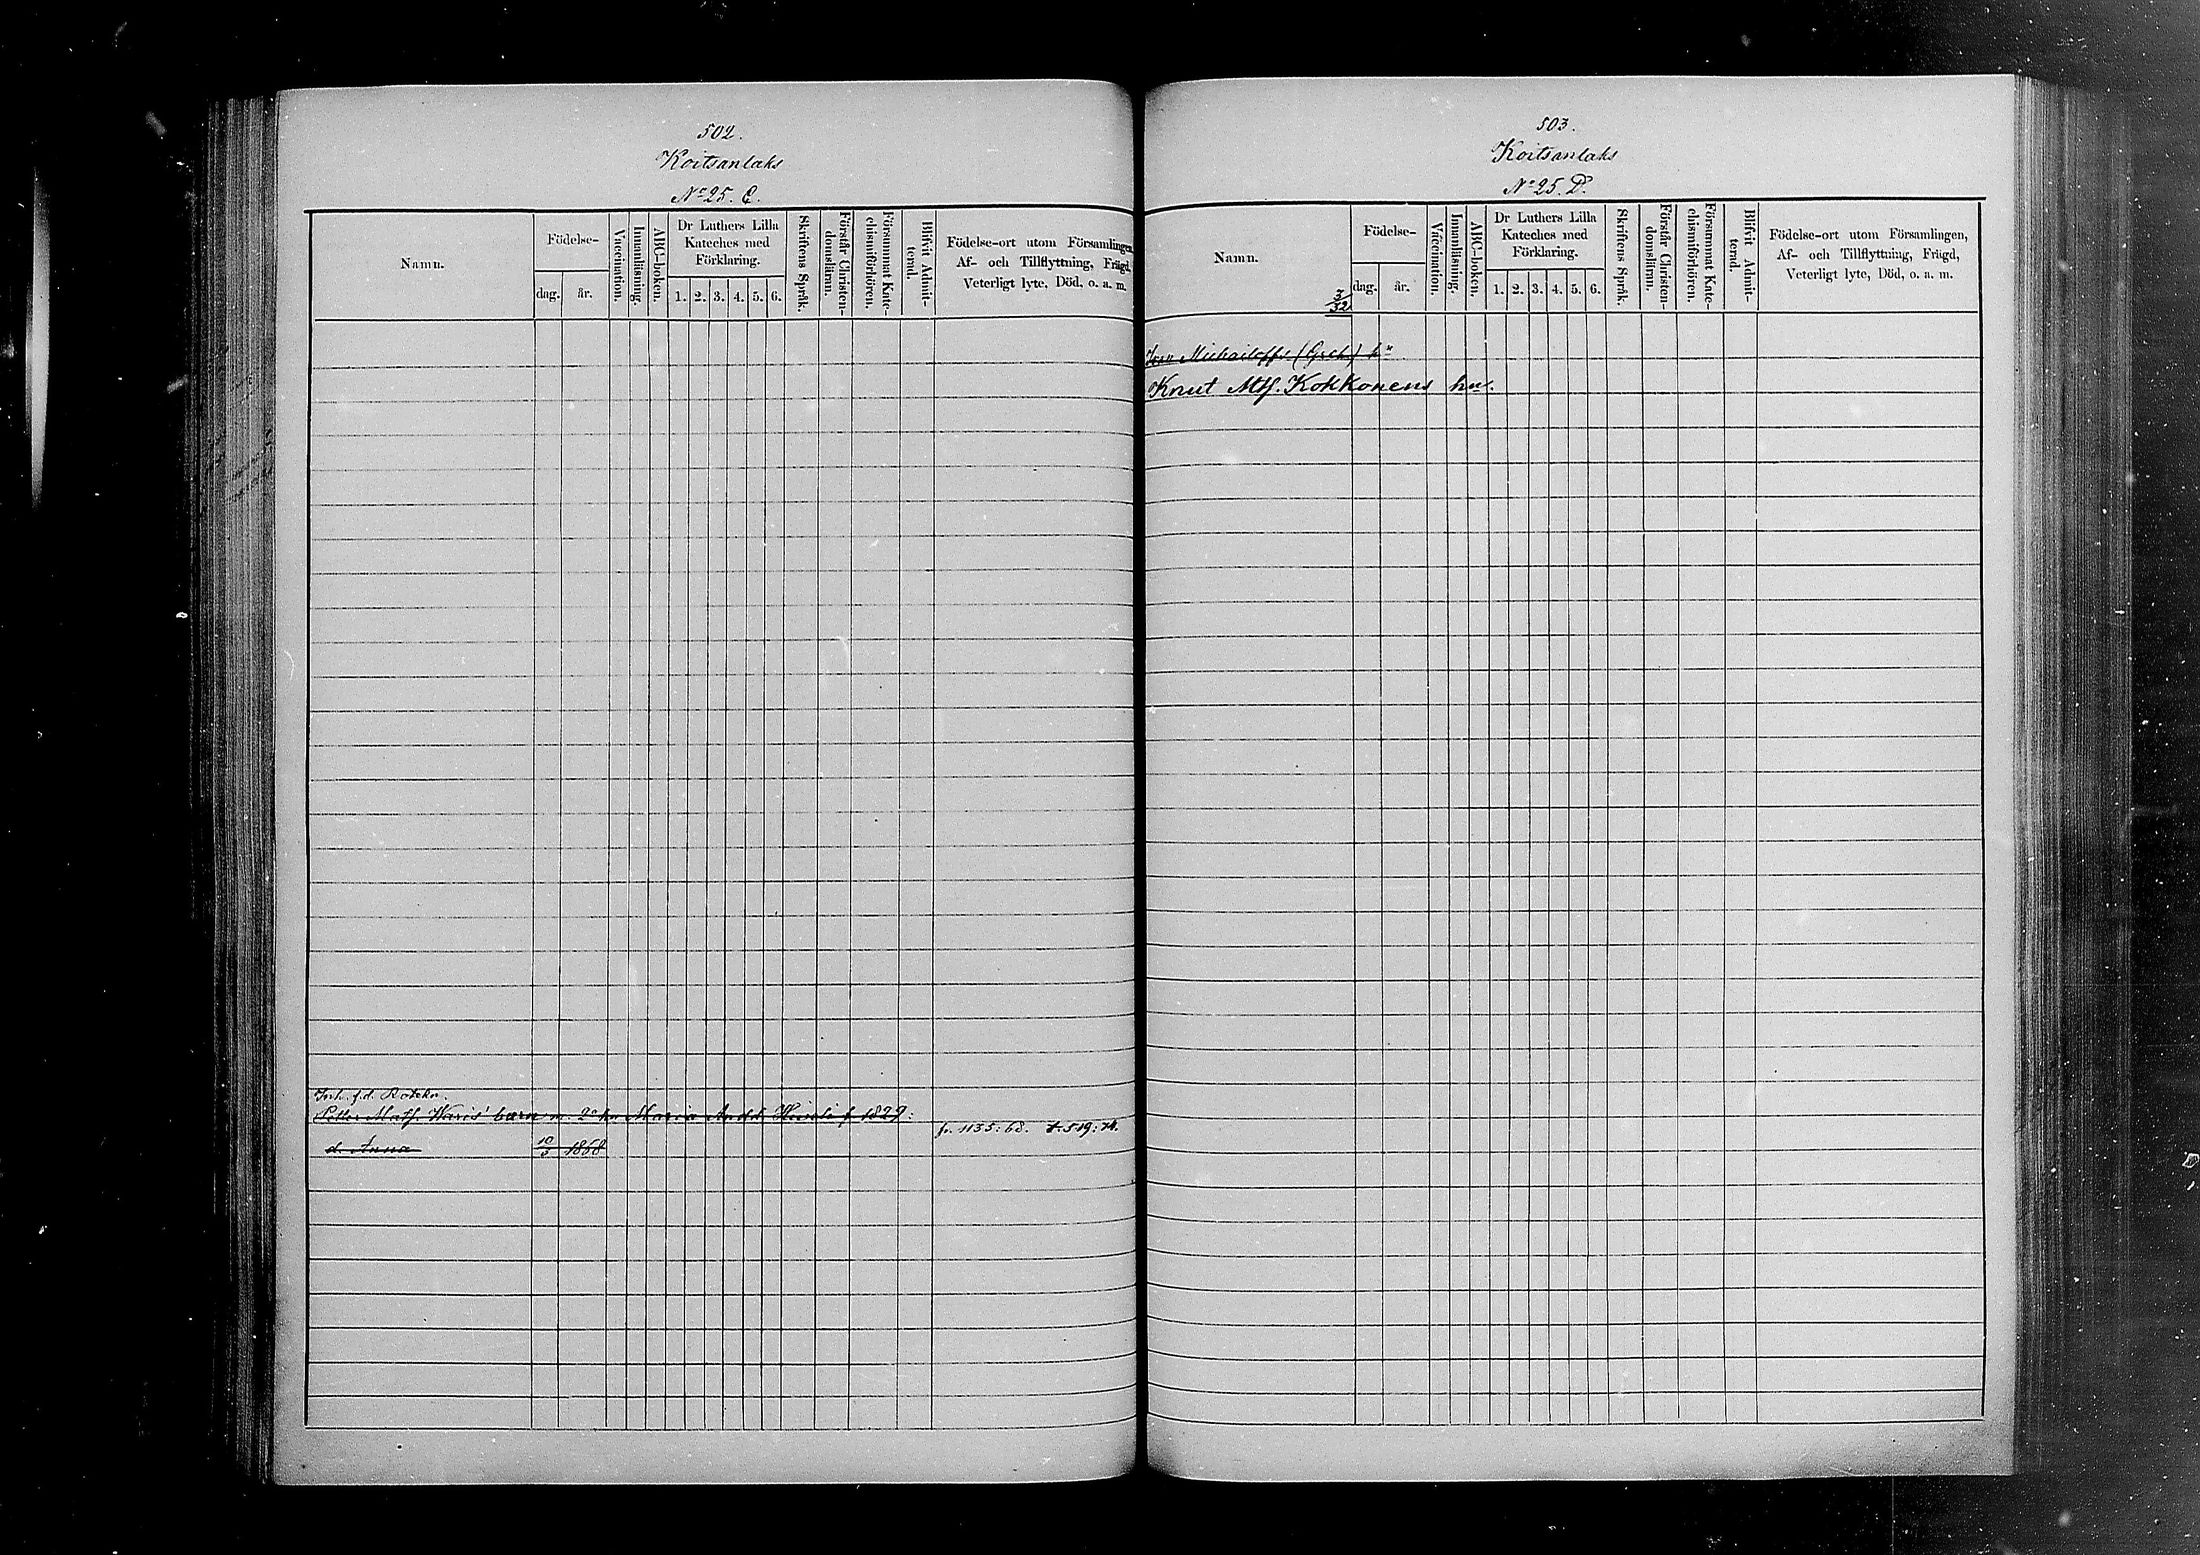 502.
Koitsanlaks
No 25. C.
Namn.
Födelse-
dag.
år.
Vaccination.
Innanläsning.
ABC-boken.
Dr Luthers Lilla
Kateches med
Förklaring.
1. 2. 3. 4. 5. 6.
Skriftens Språk.
Förstår Christen-
domsläran.
Försummat Kate-
chismiförhören.
Blifvit Admit-
terad.
Födelse-ort utom Församlingen,
Af- och Tillflyttning, Frägd,
Veterligt lyte, Död, o. a. m.
Inh. f.d. Rotekn.
Petter Math. Waris' barn m. 2a hu Maria Andd. f 1829:
d. Anna 10/3 1868 fr. 1135:68. t. 519:74.
503.
Koitsanlaks
No 25. D.
Namn.
3/32
Födelse-
dag.
år.
Vaccination.
Innanläsning.
ABC-boken.
Dr Luthers Lilla
Kateches med
Förklaring.
1. 2. 3. 4. 5. 6.
Skriftens Språk.
Förstår Christen-
domsläran.
Försummat Kate-
chismiförhören.
Blifvit Admit-
terad.
Födelse-ort utom Församlingen,
Af- och Tillflyttning, Frägd,
Veterligt lyte, Död, o. a. m.
Ivan Michailoffs (Grek)
Knut Mts. Kokkonens hu.